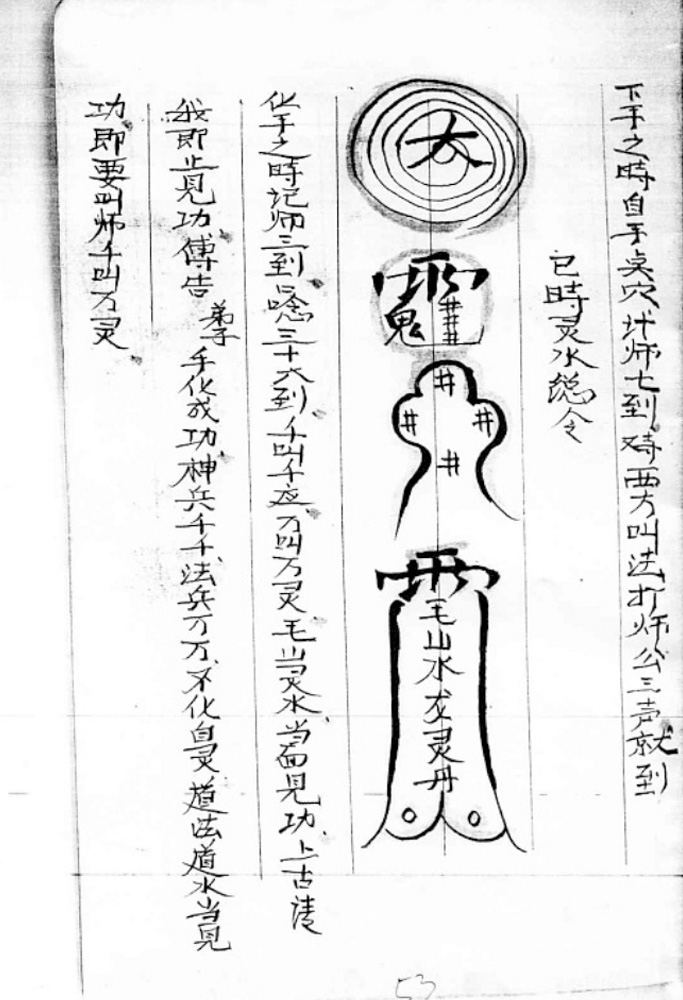 下手之時自手点穴计师七到对西方叫法打师公三声就到
已時灵水總令
太
鬼
井
井
井
井
毛山水龙灵丹
化手之時记师三到口唸三十六到千叫千应万叫万灵毛当灵水当面見功上古淒
我即止見功傳告弟子手化成功神兵千千法兵万万不化自灵道法道水当見
功即要叫师千叫万灵
53